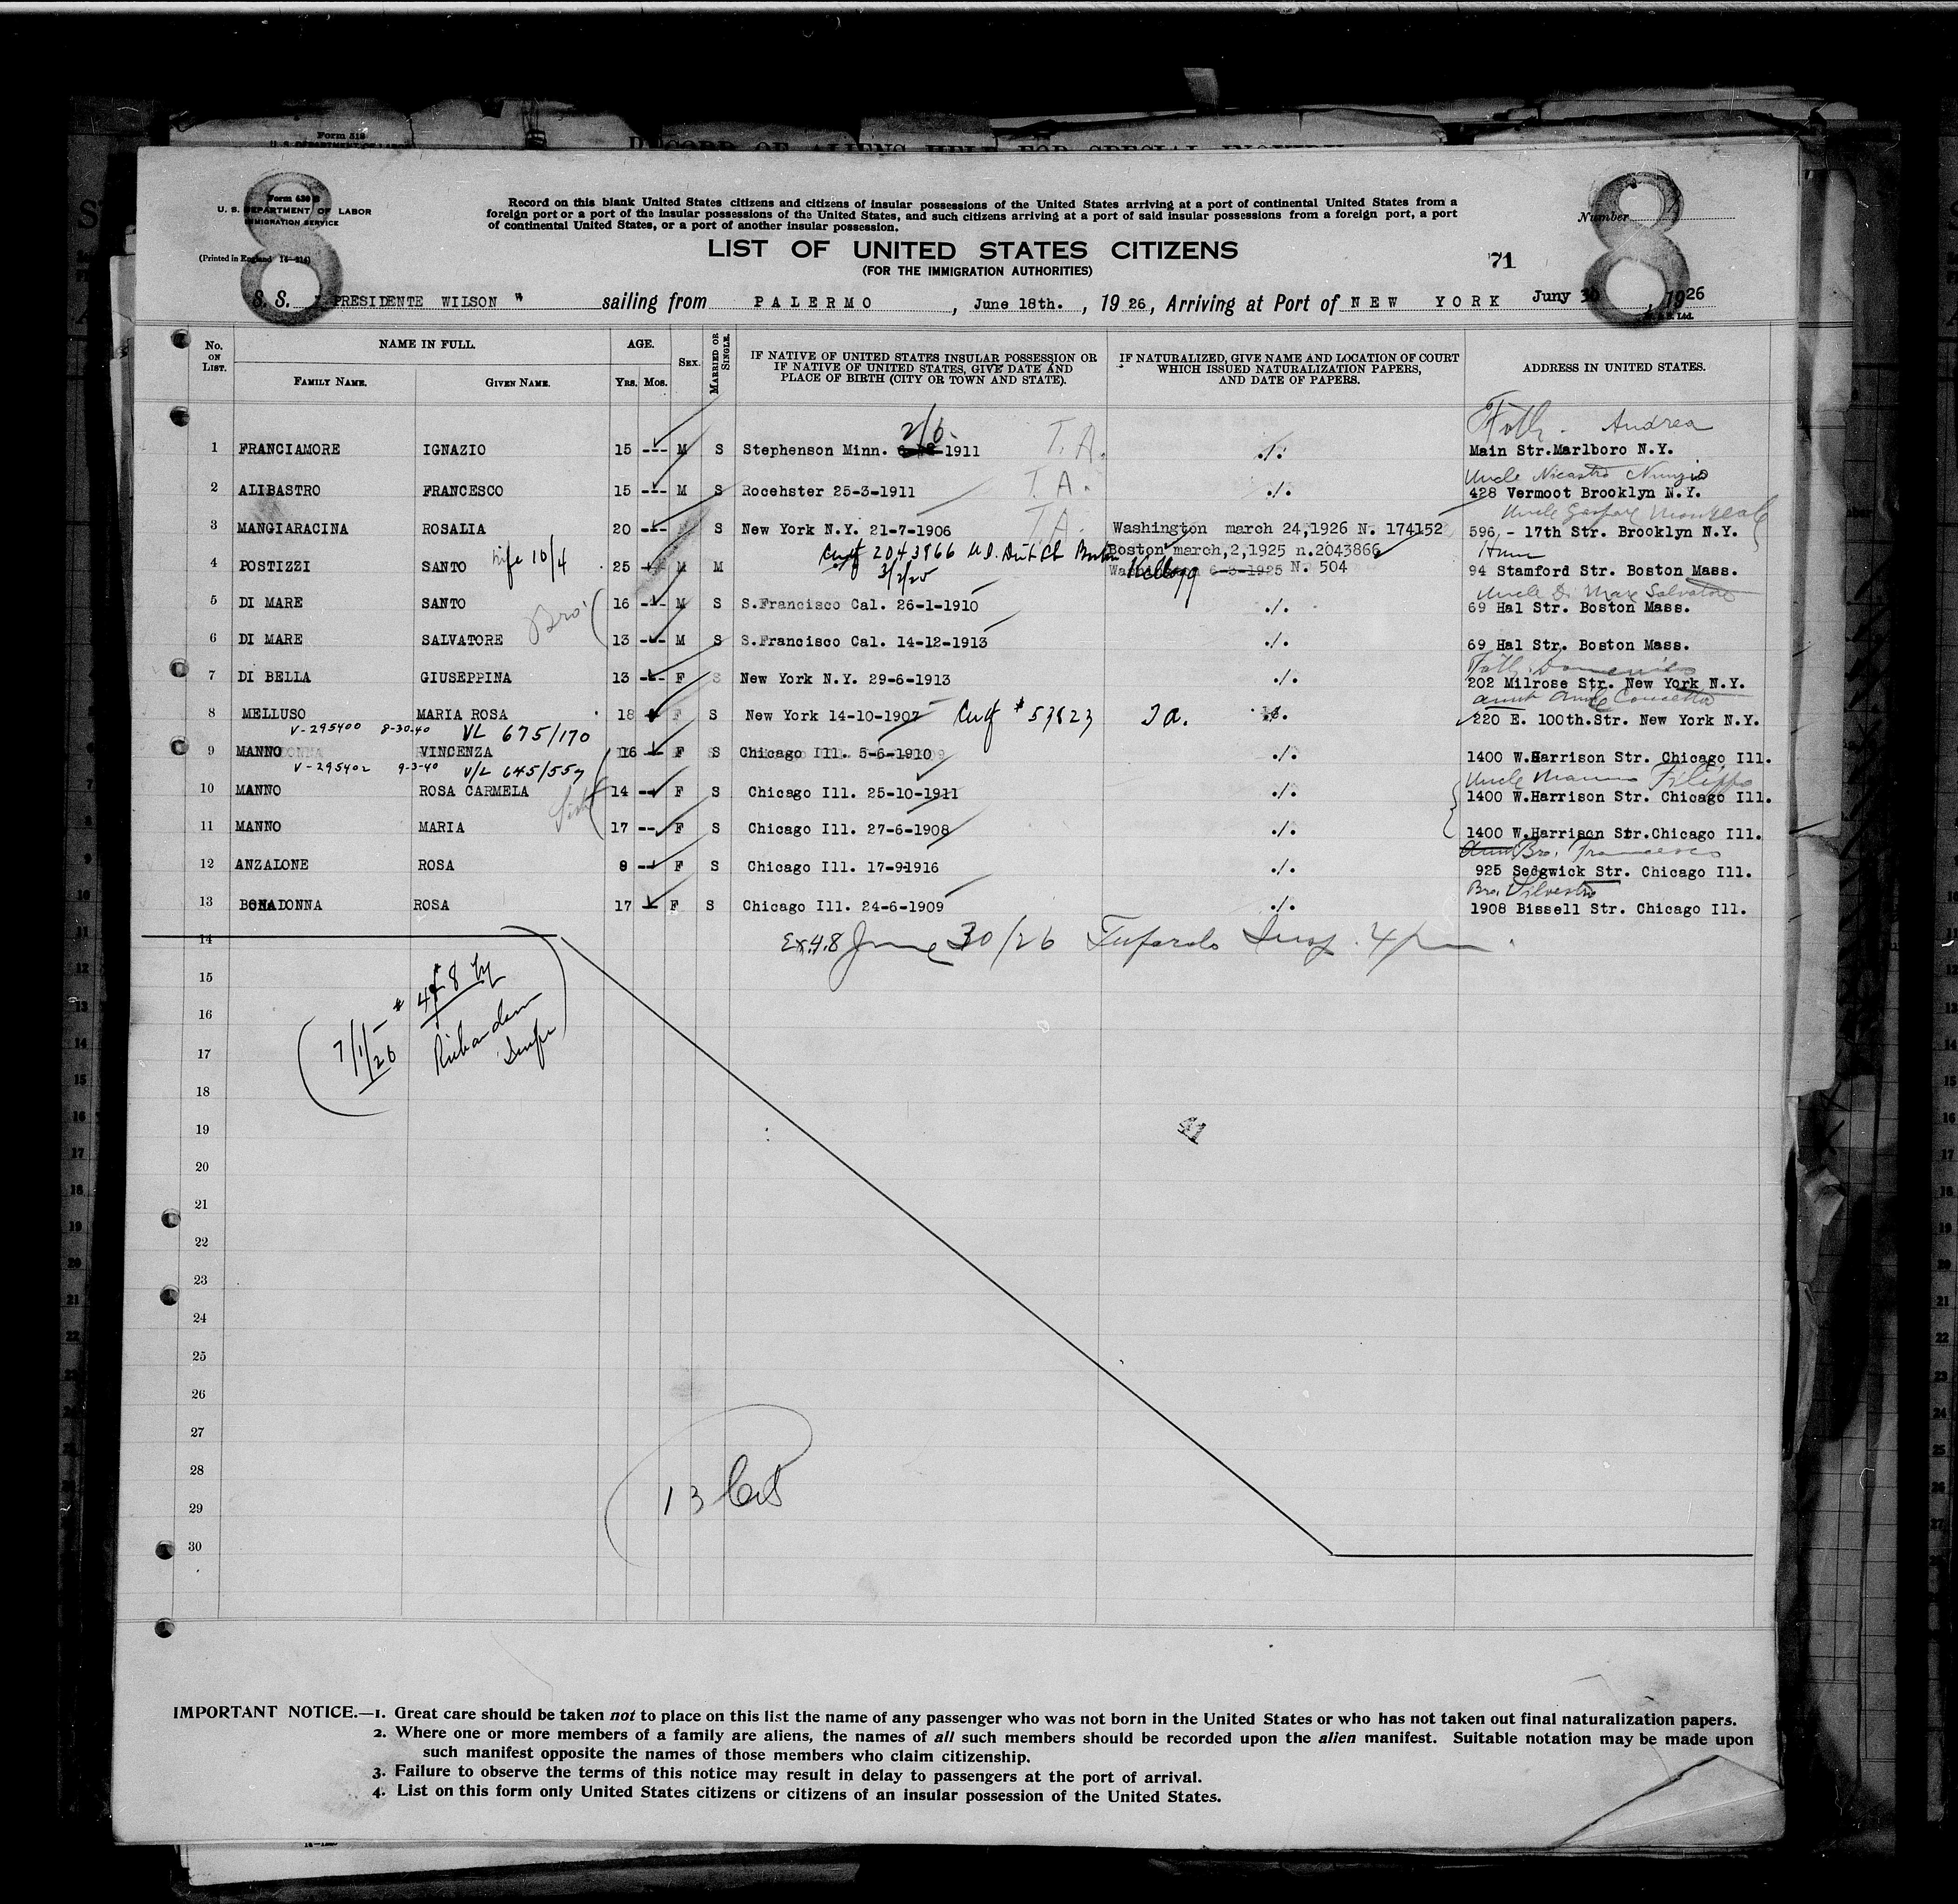 Form 518
U. S. DEPARTMENT OF LABOR
RECORD OF ALIENS HELD FOR SPECIAL INQUIRY
8
8
Form 630
U. S. DEPARTMENT OF LABOR
IMMIGRATION SERVICE
(Printed in England
Record on this blank United States citizens and citizens of insular possessions of the United States arriving at a port of continental United States from a
foreign port or a port of the insular possessions of the United States, and such citizens arriving at a port of said insular possessions from a foreign port, a port
of continental United States, or a port of another insular possession.
Number
LIST OF UNITED STATES CITIZENS
(FOR THE IMMIGRATION AUTHORITIES)
71
S. S. PRESIDENTE WILSON " sailing from PALERMO, June 18th. , 19 26, Arriving at Port of NEW YORK Juny 30, 1926
No. ON LIST.
NAME IN FULL.
FAMILY NAME.
GIVEN NAME.
AGE.
Yrs. Mos.
SEX.
MARRIED OR SINGLE.
IF NATIVE OF UNITED STATES INSULAR POSSESSION OR
IF NATIVE OF UNITED STATES, GIVE DATE AND
PLACE OF BIRTH (CITY OR TOWN AND STATE).
IF NATURALIZED, GIVE NAME AND LOCATION OF COURT
WHICH ISSUED NATURALIZATION PAPERS,
AND DATE OF PAPERS.
ADDRESS IN UNITED STATES.
2/6. Foth. Andrea
1 FRANCIAMORE IGNAZIO 15 --- M S Stephenson Minn. 1911 T.A. ./. Main Str.Marlboro N.Y.
Uncle Nicastro Nunzio
2 ALIBASTRO FRANCESCO 15 --- M S Rocehster 25-3-1911 T.A. ./. 428 Vermoot Brooklyn N.Y.
Uncle Gaspare
3 MANGIARACINA ROSALIA 20 --- S New York N.Y. 21-7-1906 T.A. Washington march 24,1926 N. 174152 596 - 17th Str. Brooklyn N.Y.
Boston march,2,1925 n.2043866
4 POSTIZZI SANTO 10/4 25 M M 2043966 3/2/25 Kellogg 6-3-1925 N. 504 94 Stamford Str. Boston Mass.
Uncle Di Mare Salvatore
5 DI MARE SANTO 16 --- M S S.Francisco Cal. 26-1-1910 ./. 69 Hal Str. Boston Mass.
Bro'
6 DI MARE SALVATORE 13 --- M S S.Francisco Cal. 14-12-1913 ./. 69 Hal Str. Boston Mass.
Foth. Domenico
7 DI BELLA GIUSEPPINA 13 --- F S New York N.Y. 29-6-1913 ./. 202 Milrose Str. New York N.Y.
8 MELLUSO MARIA ROSA 18 F S New York 14-10-1907 Cert # 57823 T.A. ./. 220 E. 100th.Str. New York N.Y.
V-295400 8-30-40 VL 675/170
9 MANNO VINCENZA 16 F S Chicago Ill. 5-6-1910 ./. 1400 W.Harrison Str. Chicago Ill.
V-295402 9-3-40 V/L 645/557
Uncle Manno Filippo
10 MANNO ROSA CARMELA 14 F S Chicago Ill. 25-10-1911 ./. 1400 W.Harrison Str. Chicago Ill.
11 MANNO MARIA 17 -- F S Chicago Ill. 27-6-1908 ./. 1400 W.Harrison Str.Chicago Ill.
Bro. Francesco
12 ANZALONE ROSA F S Chicago Ill. 17-9-1916 ./. 925 Sedgwick Str. Chicago Ill.
Bro. Silvestro
13 BONADONNA ROSA 17 F S Chicago Ill. 24-6-1909 ./. 1908 Bissell Str. Chicago Ill.
14 Ex 4.8 June 30/26 Insp. 4 pm
15
16
7/1/26 # 4 & 8 by
Richardson
Inspr
17
18
19
20
21
22
23
24
25
26
27
28
13 Cits
29
30
IMPORTANT NOTICE.—1. Great care should be taken not to place on this list the name of any passenger who was not born in the United States or who has not taken out final naturalization papers.
2. Where one or more members of a family are aliens, the names of all such members should be recorded upon the alien manifest. Suitable notation may be made upon
such manifest opposite the names of those members who claim citizenship.
3. Failure to observe the terms of this notice may result in delay to passengers at the port of arrival.
4. List on this form only United States citizens or citizens of an insular possession of the United States.